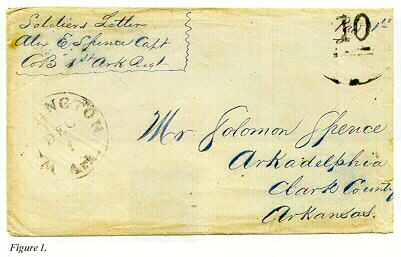 Soldiers Letter
Alex E Spence Capt
Co B 1st Ark Regt
10
INGTON
DEC
1
W Ark
Mr Solomon Spence
Arkadelphia
Clark County
Arkansas.
Figure 1.